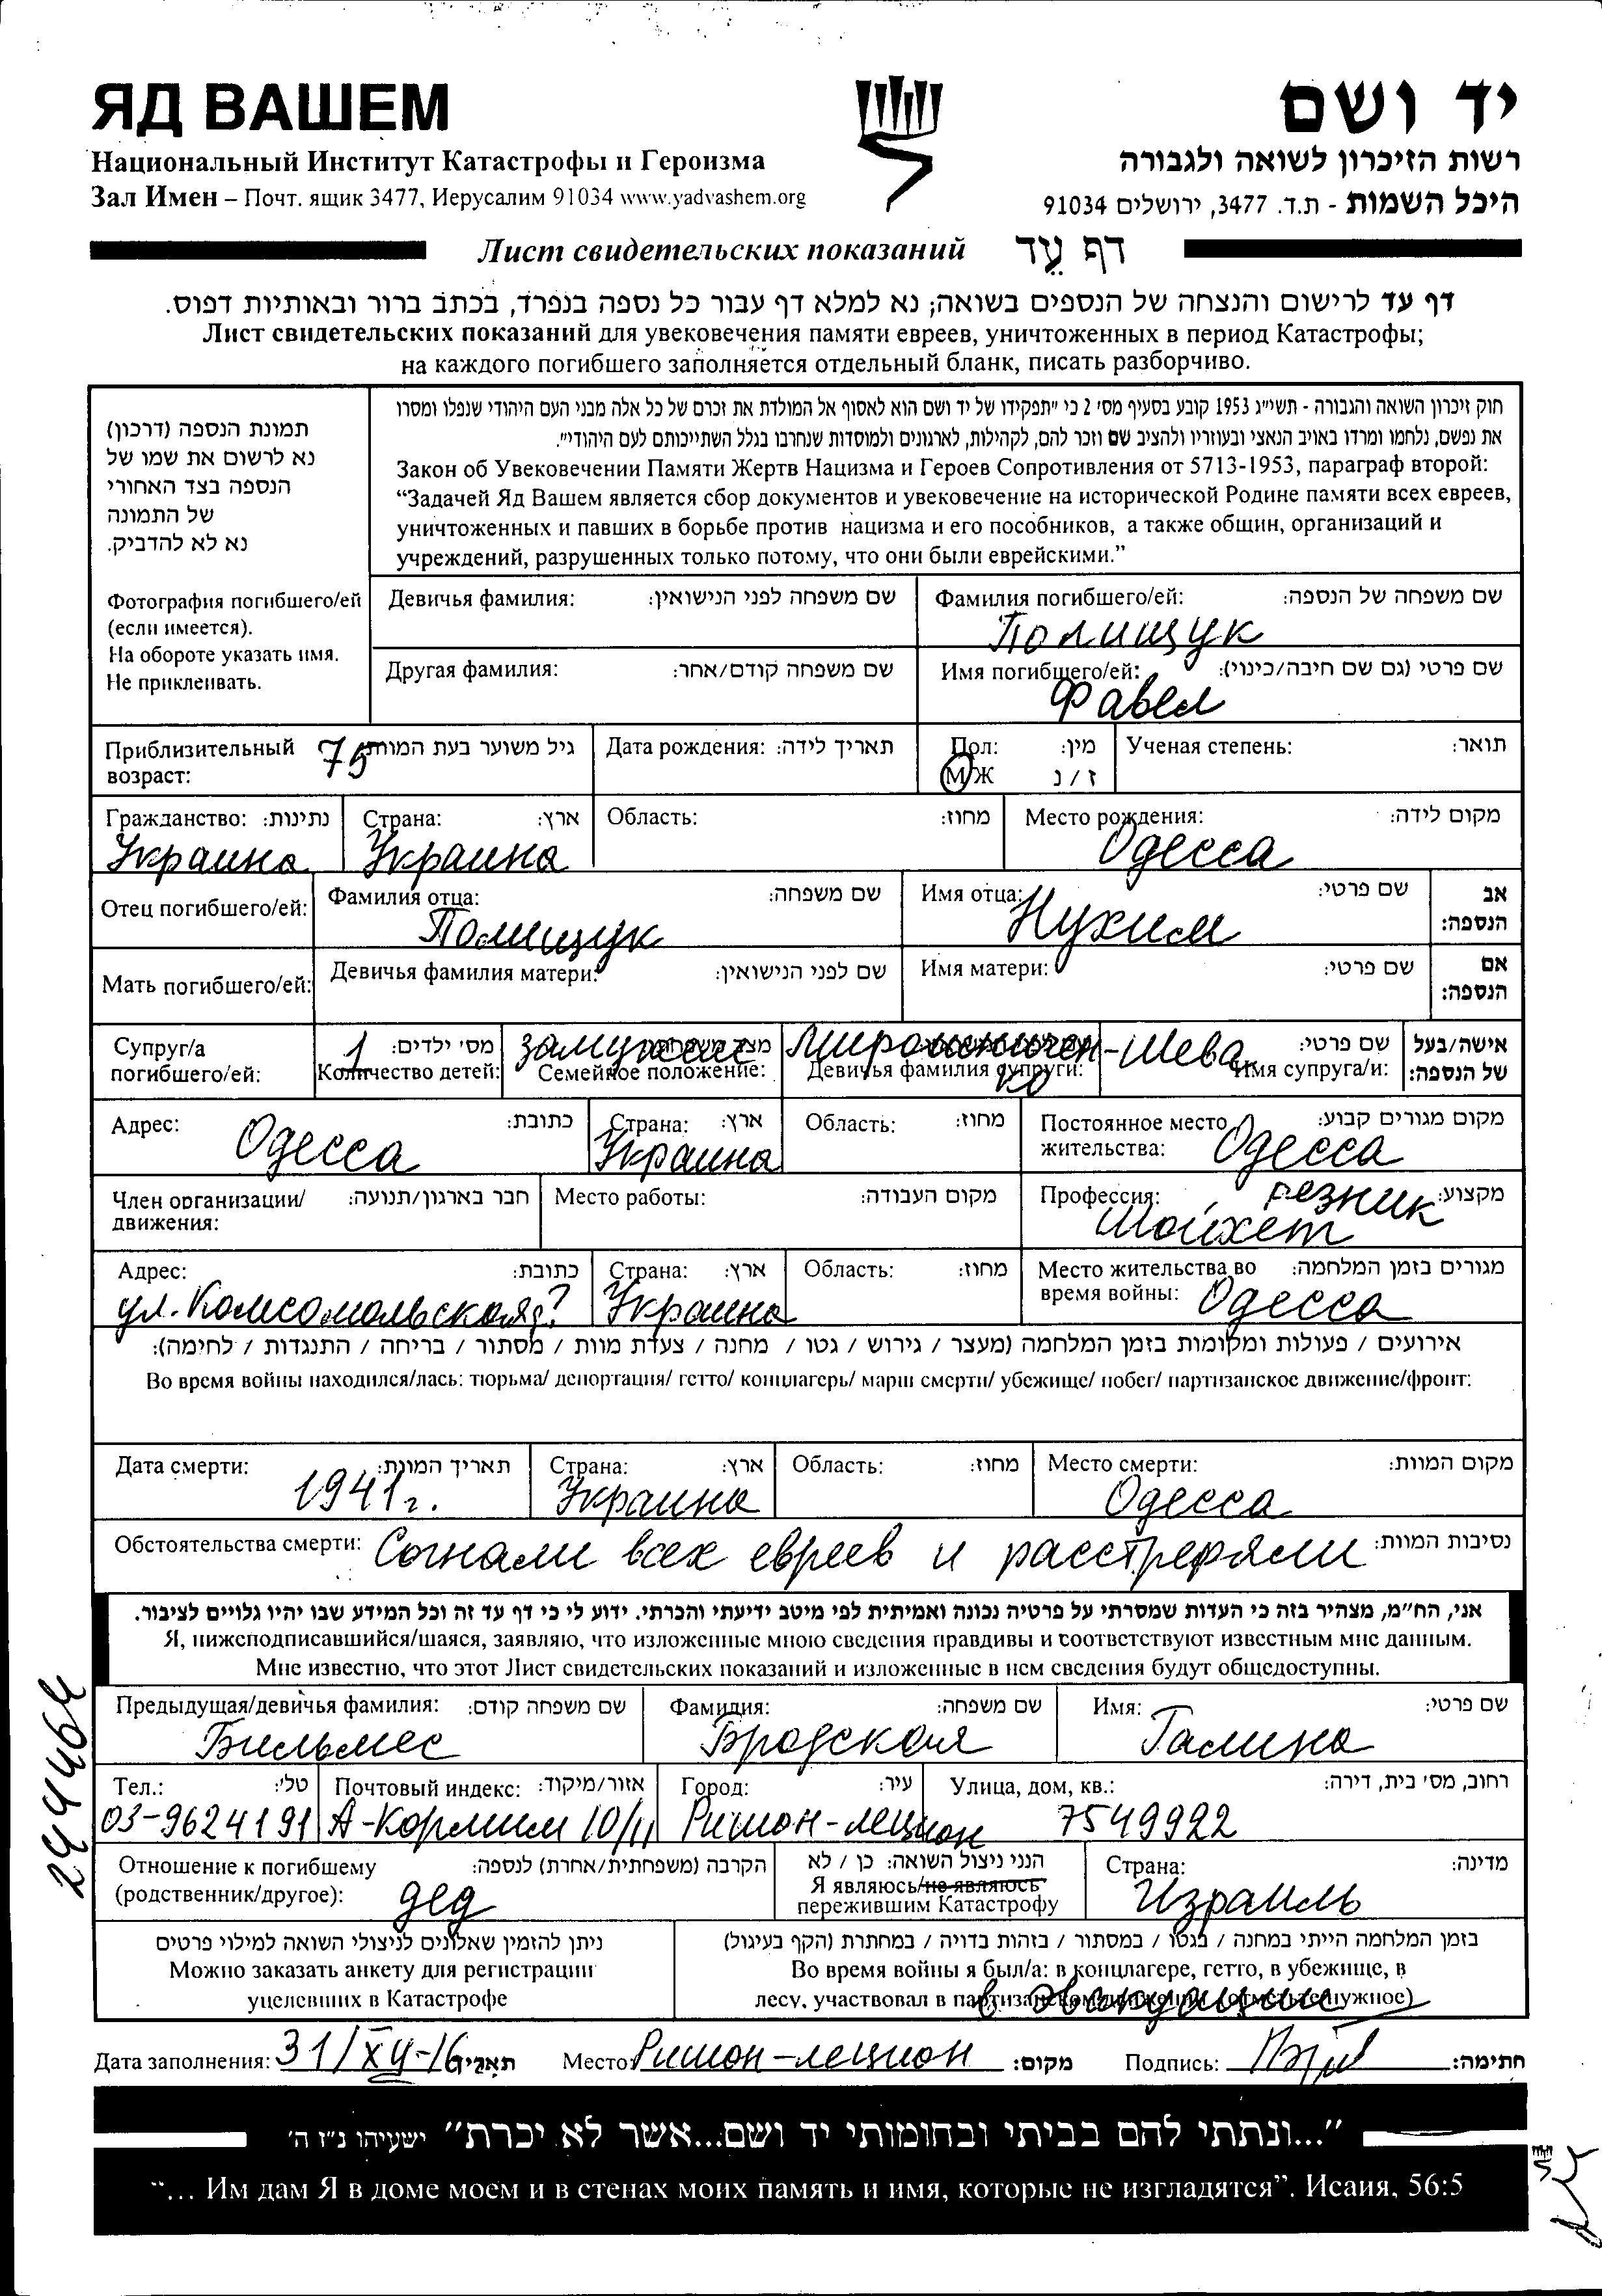 ЯД ВАШЕМ
יד ושם
Национальный Институт Катастрофы и Героизма
רשות הזיכרון לשואה ולגבורה
Зал Имен – Почт. ящик 3477, Иерусалим 91034 www.yadvashem.org
היכל השמות - ת.ד. 3477, ירושלים 91034
Лист свидетельских показаний דף עֵד
דף עד לרישום והנצחה של הנספים בשואה; נא למלא דף עבור כל נספה בנפרד, בכתב ברור ובאותיות דפוס.
Лист свидетельских показаний для увековечения памяти евреев, уничтоженных в период Катастрофы;
на каждого погибшего заполняется отдельный бланк, писать разборчиво.
תמונת הנספה (דרכון)
נא לרשום את שמו של
הנספה בצד האחורי
של התמונה
נא לא להדביק.
חוק זיכרון השואה והגבורה - תשי"ג 1953 קובע בסעיף מס' 2 כי "תפקידו של יד ושם הוא לאסוף אל המולדת את זכרם של כל אלה מבני העם היהודי שנפלו ומסרו
את נפשם, נלחמו ומרדו באויב הנאצי ובעוזריו ולהציב שם וזכר להם, לקהילות, לארגונים ולמוסדות שנחרבו בגלל השתייכותם לעם היהודי".
Закон об Увековечении Памяти Жертв Нацизма и Героев Сопротивления от 5713-1953, параграф второй:
“Задачей Яд Вашем является сбор документов и увековечение на исторической Родине памяти всех евреев,
уничтоженных и павших в борьбе против нацизма и его пособников, а также общин, организаций и
учреждений, разрушенных только потому, что они были еврейскими.”
Фотография погибшего/ей
(если имеется).
На обороте указать имя.
Не приклеивать.
Девичья фамилия: שם משפחה לפני הנישואין:
Фамилия погибшего/ей: שם משפחה של הנספה:
Полищук
Другая фамилия: שם משפחה קודם/אחר:
Имя погибшего/ей: שם פרטי (גם שם חיבה/כינוי):
Фавел
Приблизительный возраст: 75 גיל משוער בעת המוות:
Дата рождения: תאריך לידה:
Пол: מין:
М/Ж ז / נ
Ученая степень: תואר:
Гражданство: נתינות: Страна: ארץ: Область: מחוז: Место рождения: מקום לידה:
Украина Украина Одесса
Отец погибшего/ей: Фамилия отца: שם משפחה: Имя отца: שם פרטי: אב הנספה:
Полищук Нухим
Мать погибшего/ей: Девичья фамилия матери: שם לפני הנישואין: Имя матери: שם פרטי: אם הנספה:
Супруг/а погибшего/ей: 1 מס' ילדים: Количество детей: Семейное положение: Девичья фамилия супруги: Шева שם פרטי: Имя супруга/и: אישה/בעל של הנספה:
Адрес: כתובת: Страна: ארץ: Область: מחוז: Постоянное место жительства: מקום מגורים קבוע:
Одесса Украина Одесса
Член организации/движения: חבר בארגון/תנועה: Место работы: מקום העבודה: Профессия: מקצוע:
резник
Шойхет
Адрес: כתובת: Страна: ארץ: Область: מחוז: Место жительства во время войны: מגורים בזמן המלחמה:
ул. Комсомольская? Украина Одесса
אירועים / פעולות ומקומות בזמן המלחמה (מעצר / גירוש / גטו / מחנה / צעדת מוות / מסתור / בריחה / התנגדות / לחימה):
Во время войны находился/лась: тюрьма/ депортация/ гетто/ концлагерь/ марш смерти/ убежище/ побег/ партизанское движение/фронт:
Дата смерти: תאריך המוות: Страна: ארץ: Область: מחוז: Место смерти: מקום המוות:
1941 г. Украина Одесса
Обстоятельства смерти: Согнали всех евреев и расстреряли נסיבות המוות:
אני, הח"מ, מצהיר בזה כי העדות שמסרתי על פרטיה נכונה ואמיתית לפי מיטב ידיעתי והכרתי. ידוע לי כי דף עד זה וכל המידע שבו יהיו גלויים לציבור.
Я, нижеподписавшийся/шаяся, заявляю, что изложенные мною сведения правдивы и соответствуют известным мне данным.
Мне известно, что этот Лист свидетельских показаний и изложенные в нем сведения будут общедоступны.
Предыдущая/девичья фамилия: שם משפחה קודם: Фамилия: שם משפחה: Имя: שם פרטי:
Бильмес Бродская Галина
Тел.: טל': Почтовый индекс: אזור/מיקוד: Город: עיר: Улица, дом, кв.: רחוב, מס' בית, דירה:
03-9624191 А-Кормим 10/11 Ришон-лецион 7549922
Отношение к погибшему (родственник/другое): הקרבה (משפחתית/אחרת) לנספה:
дед
הנני ניצול השואה: כן / לא
Я являюсь/не являюсь
пережившим Катастрофу
Страна: מדינה:
Израиль
ניתן להזמין שאלונים לניצולי השואה למילוי פרטים
Можно заказать анкету для регистрации
уцелевших в Катастрофе
בזמן המלחמה הייתי במחנה / בגטו / במסתור / בזהות בדויה / במחתרת (הקף בעיגול)
Во время войны я был/а: в концлагере, гетто, в убежище, в
лесу, участвовал в партизанском движении (отметьте нужное)
в эвакуации
Дата заполнения: תאריך: Место: Ришон-лецион מקום: Подпись: חתימה:
"...ונתתי להם בביתי ובחומותי יד ושם...אשר לא יכרת" ישעיהו נ"ו ה'
“... Им дам Я в доме моем и в стенах моих память и имя, которые не изгладятся”. Исаия, 56:5